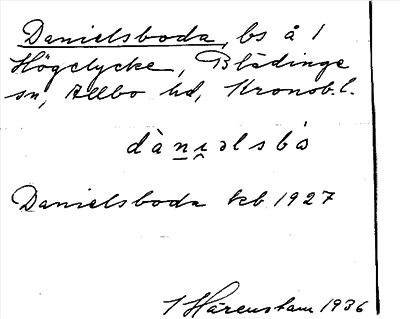 Danielsboda, bs å 1
Högelycke, Blädinge
sn, Allbo hd, Kronob. l.
dàniəlsbò
Danielsboda kb 1927
I Härenstam 1936